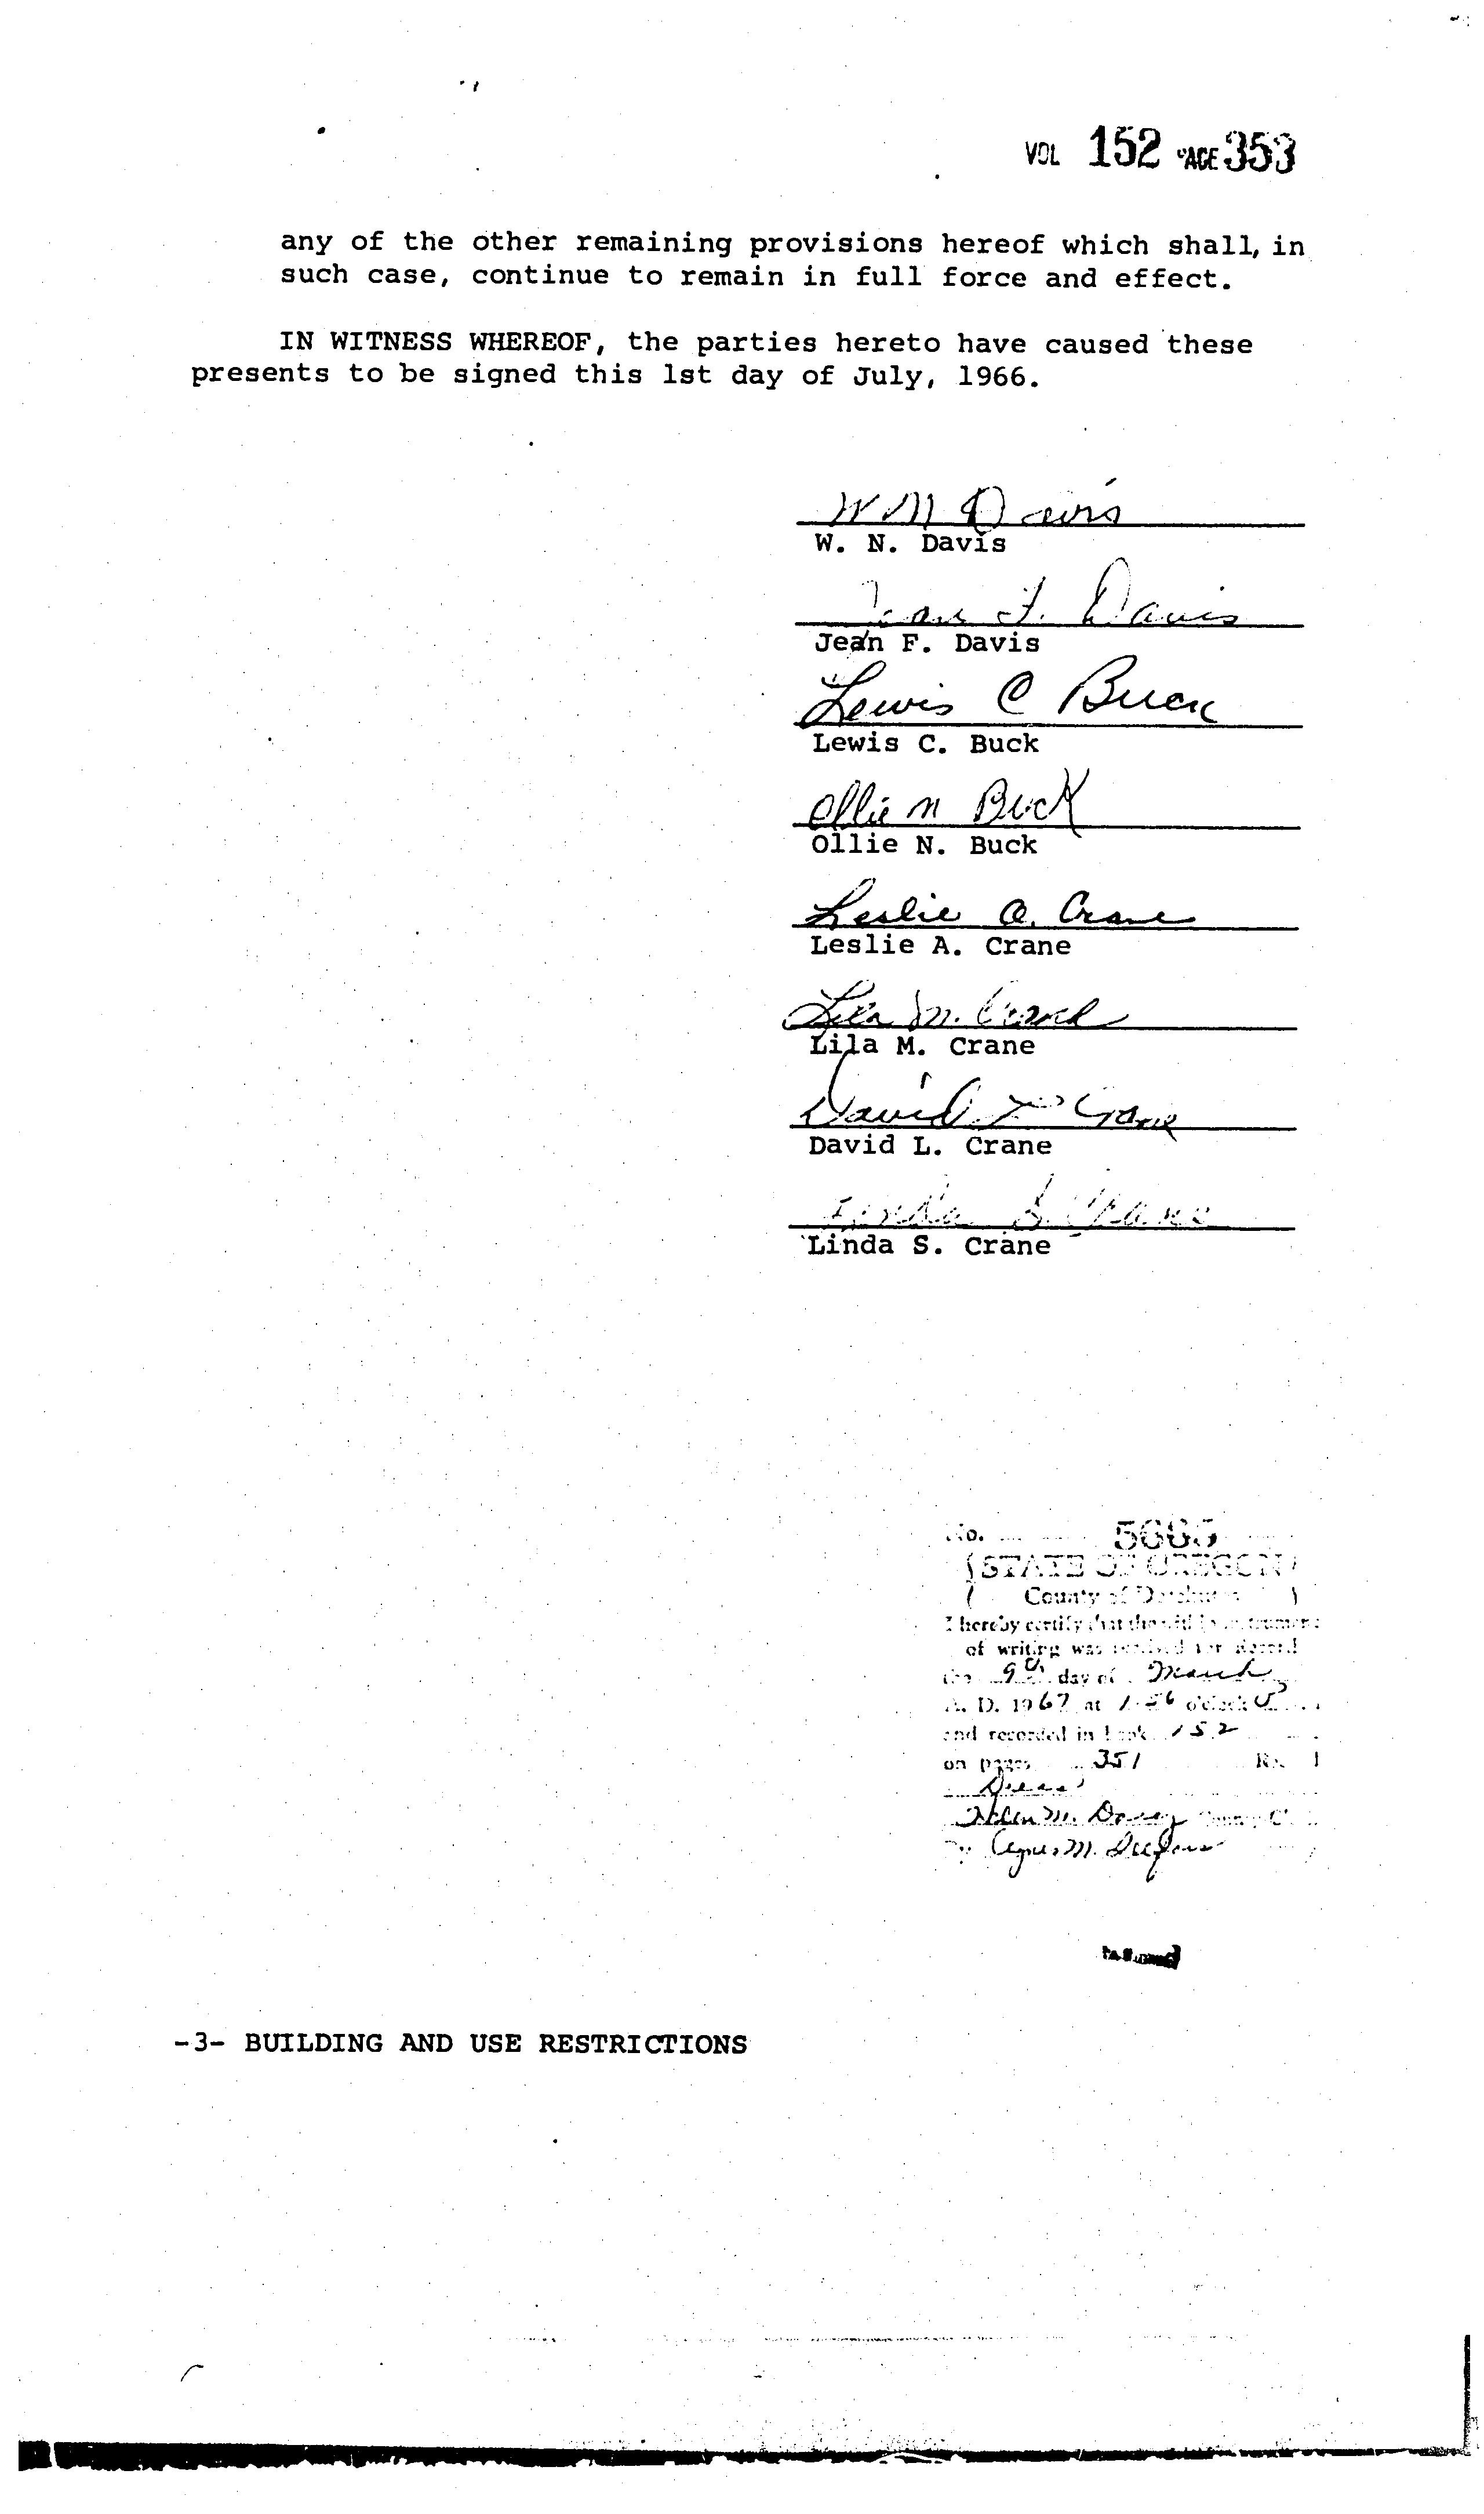 VOL 152 PAGE 353
any of the other remaining provisions hereof which shall, in
such case, continue to remain in full force and effect.
IN WITNESS WHEREOF, the parties hereto have caused these
presents to be signed this 1st day of July, 1966.
W N Davis
W. N. Davis
Jean F. Davis
Jean F. Davis
Lewis C Buck
Lewis C. Buck
Ollie N Buck
Ollie N. Buck
Leslie A. Crane
Leslie A. Crane
Lila M. Crane
Lila M. Crane
David L Crane
David L. Crane
Linda S. Crane
Linda S. Crane
No.
STATE OF OREGON
County of Deschutes
I hereby certify that the within instrument
of writing was received for Record
the 9th day of March
A. D. 1967 at o'clock P
and recorded in Book 152
on pages 351
Deeds
Helen M. Dacey County
By Agnes M.
-3- BUILDING AND USE RESTRICTIONS